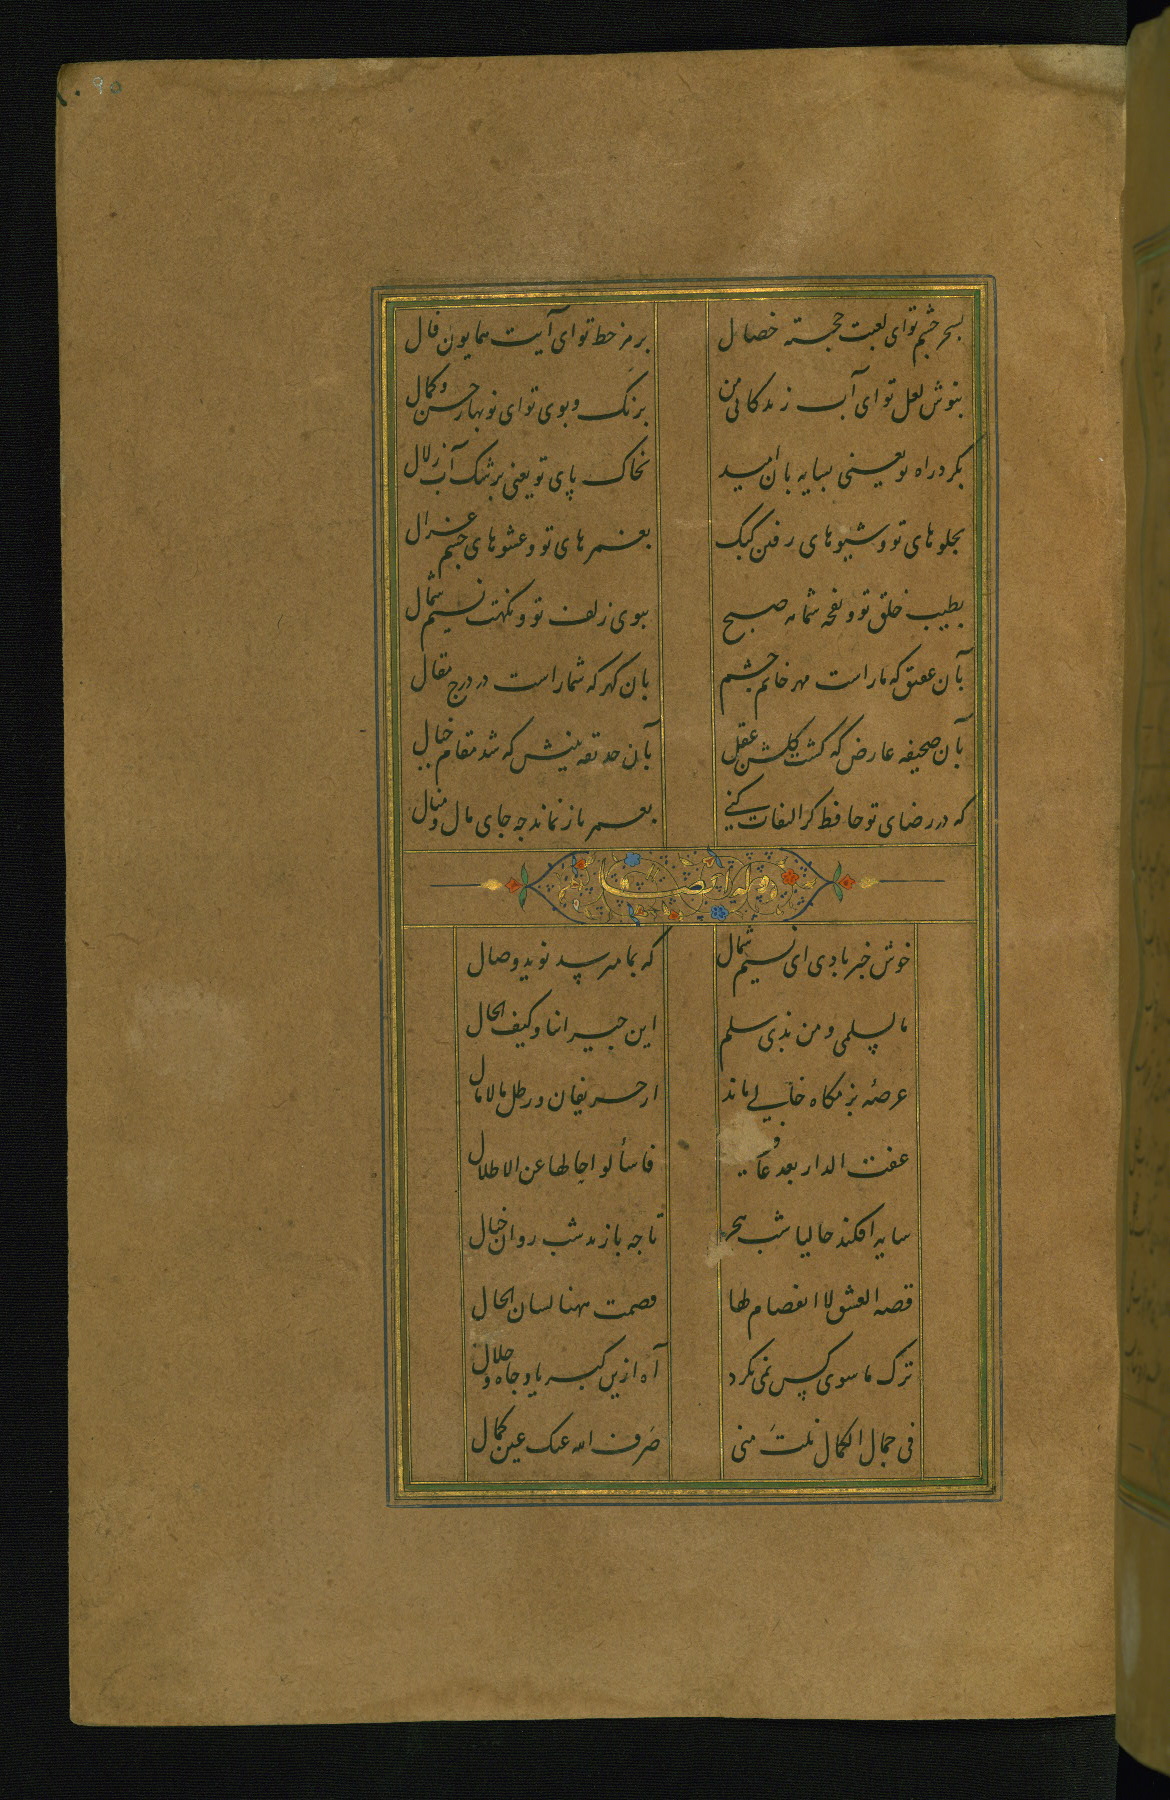 بسحر چشم تو ای لعبت خجسته خصال
برمز خط تو ای آیت همایون فال
بنوش لعل تو ای آب زندکانی من
برنک و بوی تو ای نوبهار حسن و کمال
بکرد راه تو یعنی بسایه بان امید
بخاک پای تو یعنی برشک آب زلال
بجلوهای تو و شیوهای رفتن کبک
بغمزهای تو و عشوهای چشم غزال
بطیب خلق تو و نفحه شمامه صبح
ببوی زلف تو و نکهت نسیم شمال
بآن عقیق که ما راست مهر خاتم چشم
بان کهر که شما راست در درج مقال
بآن صحیفه عارض که کشت کلشن عقل
بآن حدیقه بینش که شد مقام خیال
که در رضای تو حافظ کر التفات کنی
بعمر باز نماند چه جای مال و منال
وله ایضا
خوش خبر بادی ای نسیم شمال
که بما میرسد نوید وصال
ما لسلمی و من بذی سلم
این جیراننا و کیف الحال
عرصهٔ بزمکاه خالی ماند
از حریفان و رطل مالامال
عفت الدار بعد عافیة
فاسألوا حالها عن الاطلال
سایه افکند حالیا شب هجر
تا چه بازند شب روان خیال
قصه العشق لا انفصام لها
فصمت ههنا لسان الحال
ترک ما سوی کس نمی نکرد
آه ازین کبریا و جاه و جلال
فی جمال الکمال نلت منی
صرف الله عنک عین کمال